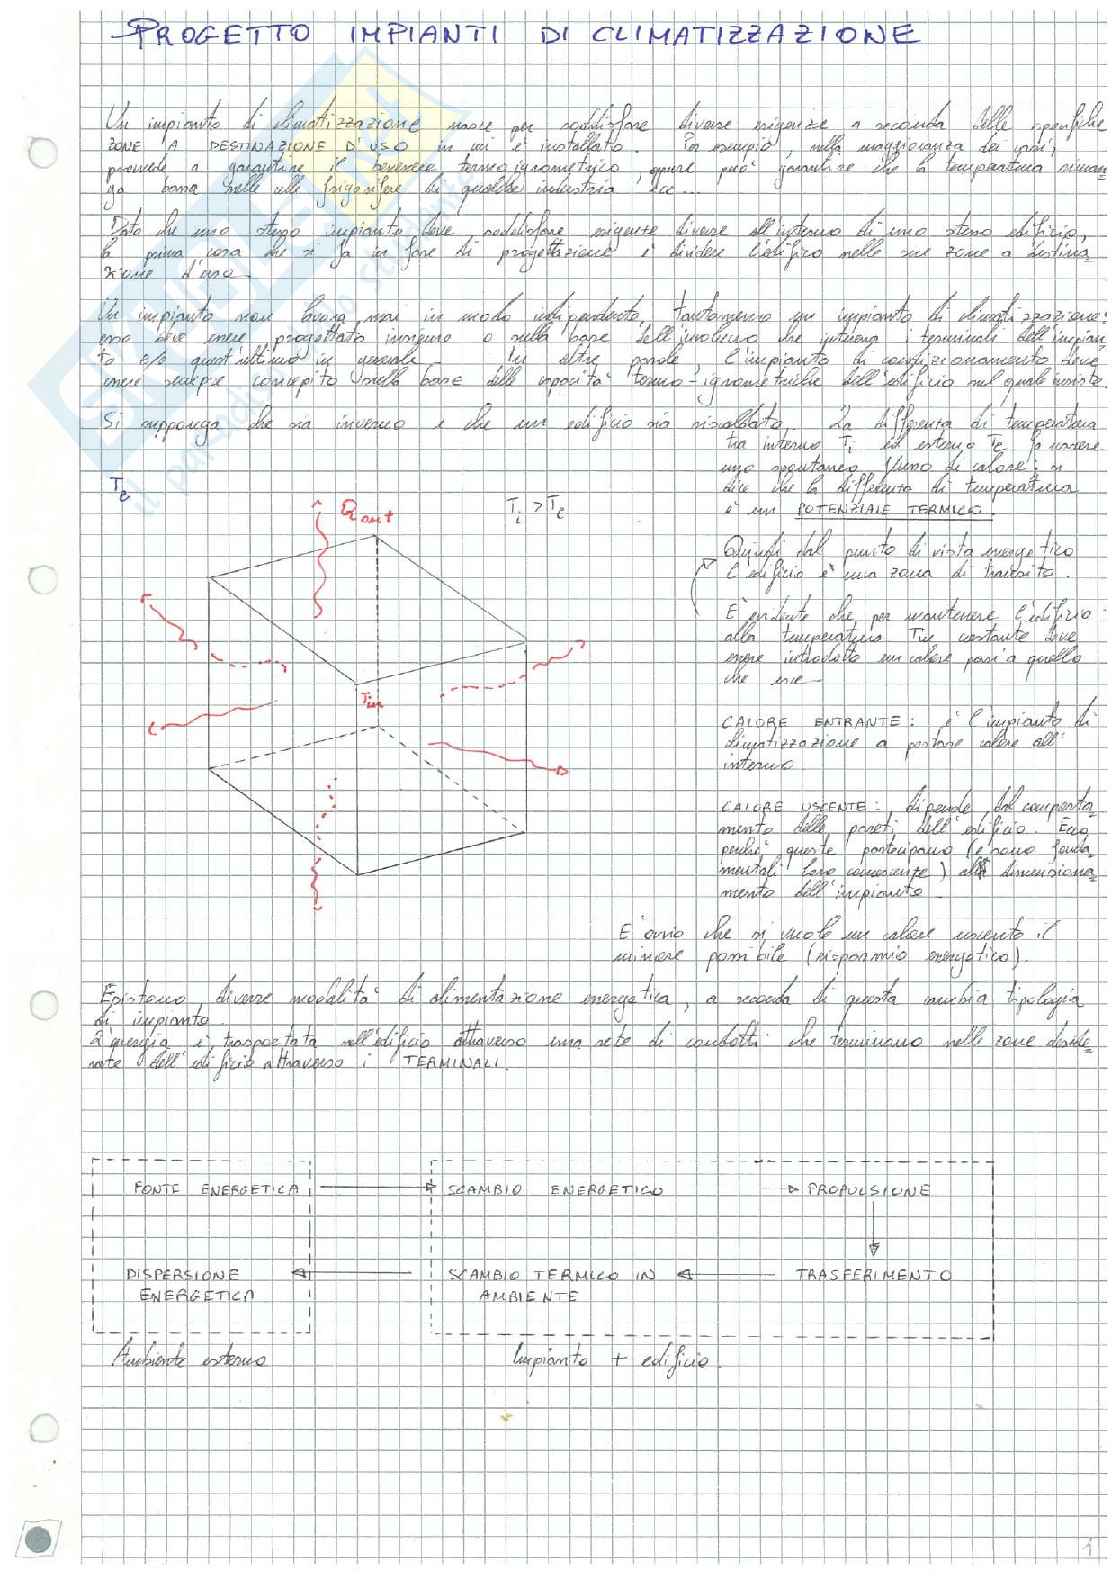 PROGETTO IMPIANTI DI CLIMATIZZAZIONE
Un impianto di climatizzazione nasce per soddisfare diverse esigenze a seconda delle specifiche
ZONE A DESTINAZIONE D'USO in cui è installato. Per esempio, nella maggioranza dei casi,
provvede a garantire il benessere termoigrometrico, oppure può garantire che la temperatura riman
ga bassa nelle celle frigorifere di qualche industria, ecc...
Dato che uno stesso impianto deve soddisfare esigenze diverse all'interno di uno stesso edificio,
la prima cosa che si fa in fase di progettazione è dividere l'edificio nelle sue zone a destina
zione d'uso.
Un impianto non lavora mai in modo indipendente, tantomeno un impianto di climatizzazione:
esso deve essere progettato insieme o sulla base dell'involucro che interessa i terminali dell'impian
to e/o quest'ultimo in generale. In altre parole, l'impianto di condizionamento deve
essere sempre concepito sulla base delle capacità termo-igrometriche dell'edificio sul quale insiste.
Si supponga che sia inverno e che un edificio sia riscaldato. La differenza di temperatura
tra interno Ti ed esterno Te fa nascere
uno spontaneo flusso di calore: si
dice che la differenza di temperatura
è un POTENZIALE TERMICO.
Te
Qout
Ti > Te
Quindi dal punto di vista energetico
l'edificio è una zona di transito.
È evidente che per mantenere l'edificio
alla temperatura Tin costante deve
essere introdotto un calore pari a quello
che esce.
Tin
CALORE ENTRANTE: è l'impianto di
climatizzazione a portare calore all'
interno.
CALORE USCENTE: dipende dal comporta
mento delle pareti dell'edificio. Ecco
perché queste partecipano (e sono fonda
mentali loro conoscenze) al dimensiona
mento dell'impianto.
È ovvio che si vuole un calore uscente il
minore possibile (risparmio energetico).
Esistono diverse modalità di alimentazione energetica, a seconda di questa cambia tipologia
di impianto.
L'energia è trasportata nell'edificio attraverso una rete di condotti che terminano nelle zone deside
rate dell'edificio attraverso i TERMINALI.
FONTE ENERGETICA SCAMBIO ENERGETICO PROPULSIONE
DISPERSIONE SCAMBIO TERMICO IN TRASFERIMENTO
ENERGETICA AMBIENTE
Ambiente esterno Impianto + edificio.
1